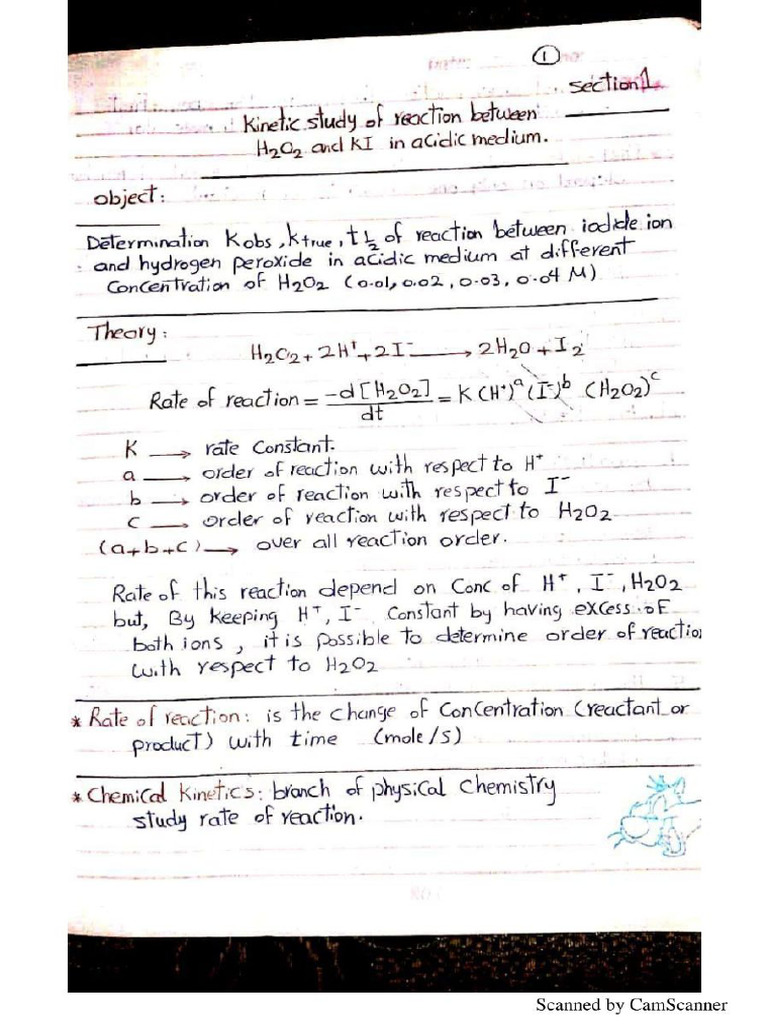 1
section 1
Kinetic study of reaction between
H₂O₂ and KI in acidic medium.
object:
Determination Kobs, ktrue, t½ of reaction between iodide ion
and hydrogen peroxide in acidic medium at different
Concentration of H₂O₂ (0.01, 0.02, 0.03, 0.04 M)
Theory:
H₂O₂ + 2H⁺ + 2I⁻ → 2H₂O + I₂
Rate of reaction = -d[H₂O₂]/dt = K (H⁺)ᵃ (I⁻)ᵇ (H₂O₂)ᶜ
K → rate Constant.
a → order of reaction with respect to H⁺
b → order of reaction with respect to I⁻
c → order of reaction with respect to H₂O₂
(a+b+c) → over all reaction order.
Rate of this reaction depend on Conc of H⁺, I⁻, H₂O₂
but, By keeping H⁺, I⁻ Constant by having excess of
both ions, it is possible to determine order of reactio
with respect to H₂O₂
* Rate of reaction: is the change of Concentration (reactant or
product) with time (mole/s)
* Chemical kinetics: branch of physical Chemistry
study rate of reaction.
Scanned by CamScanner